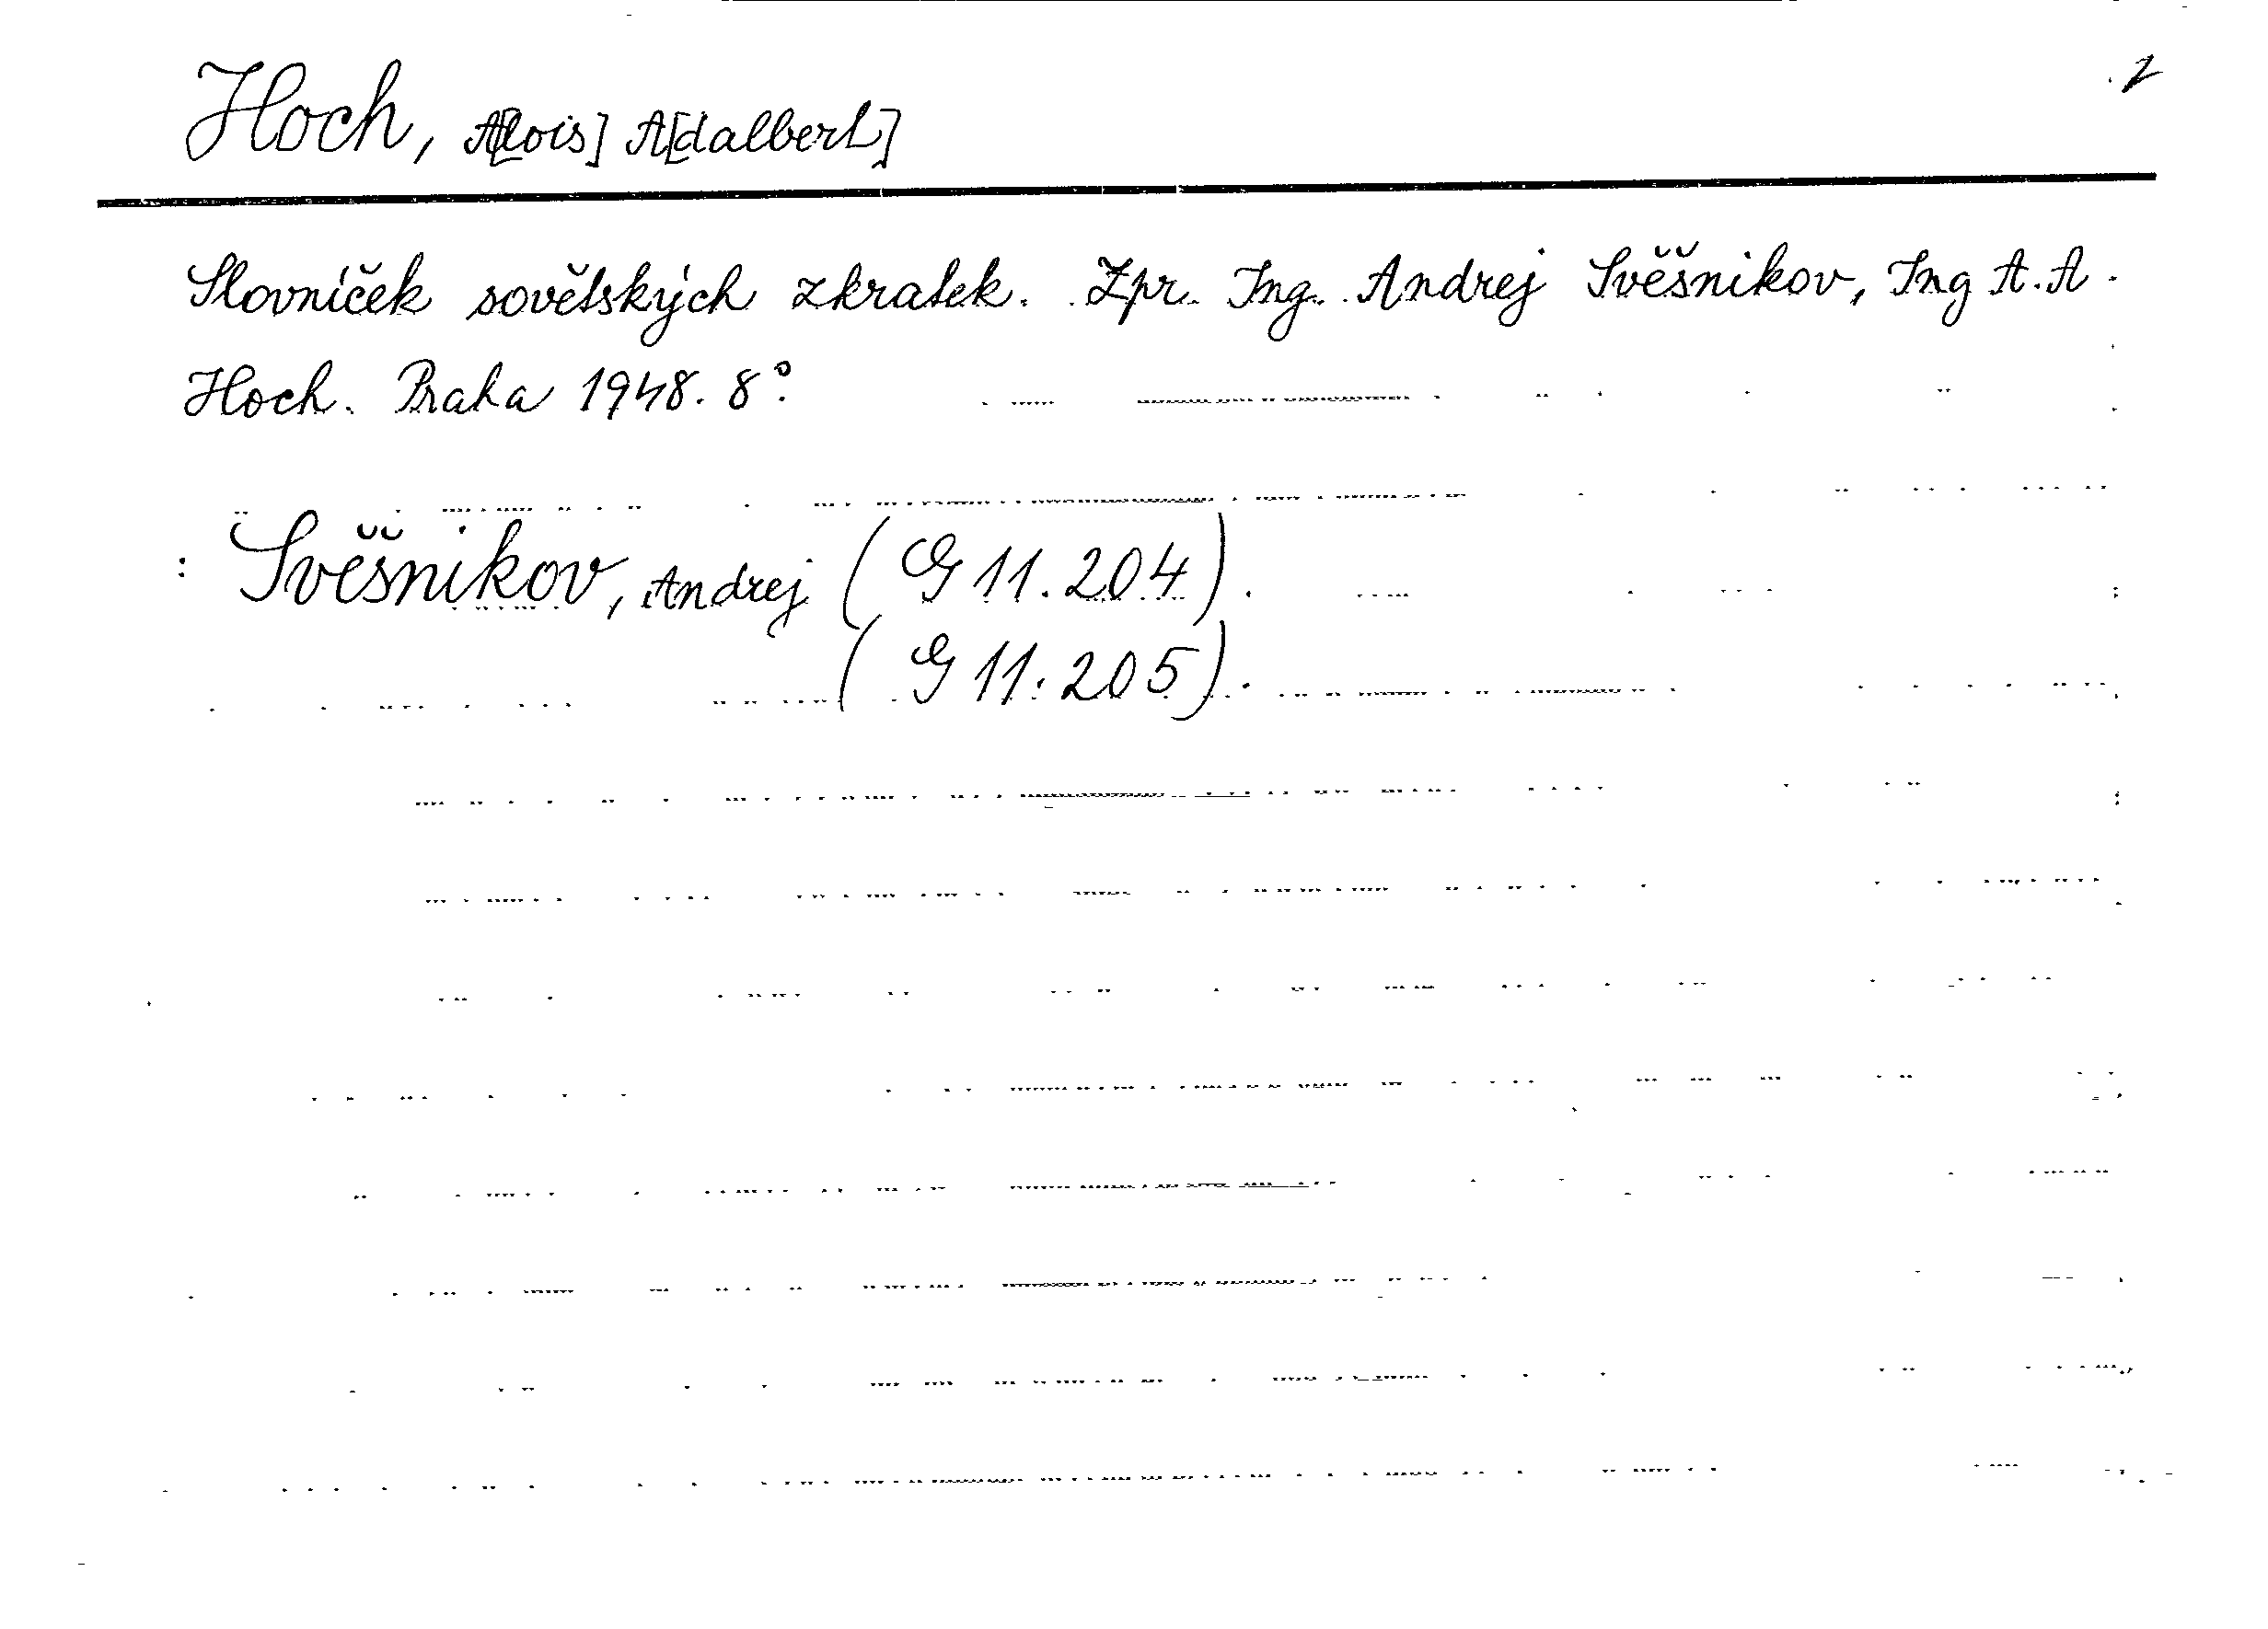 2
Hoch, A[lois] A[dalbert]
Slovníček sovětských zkratek. Zpr. Ing. Andrej Svěšnikov, Ing A. A.
Hoch. Praha 1948. 8°.
: Svěšnikov, Andrej (G 11.204).
(G 11.205).